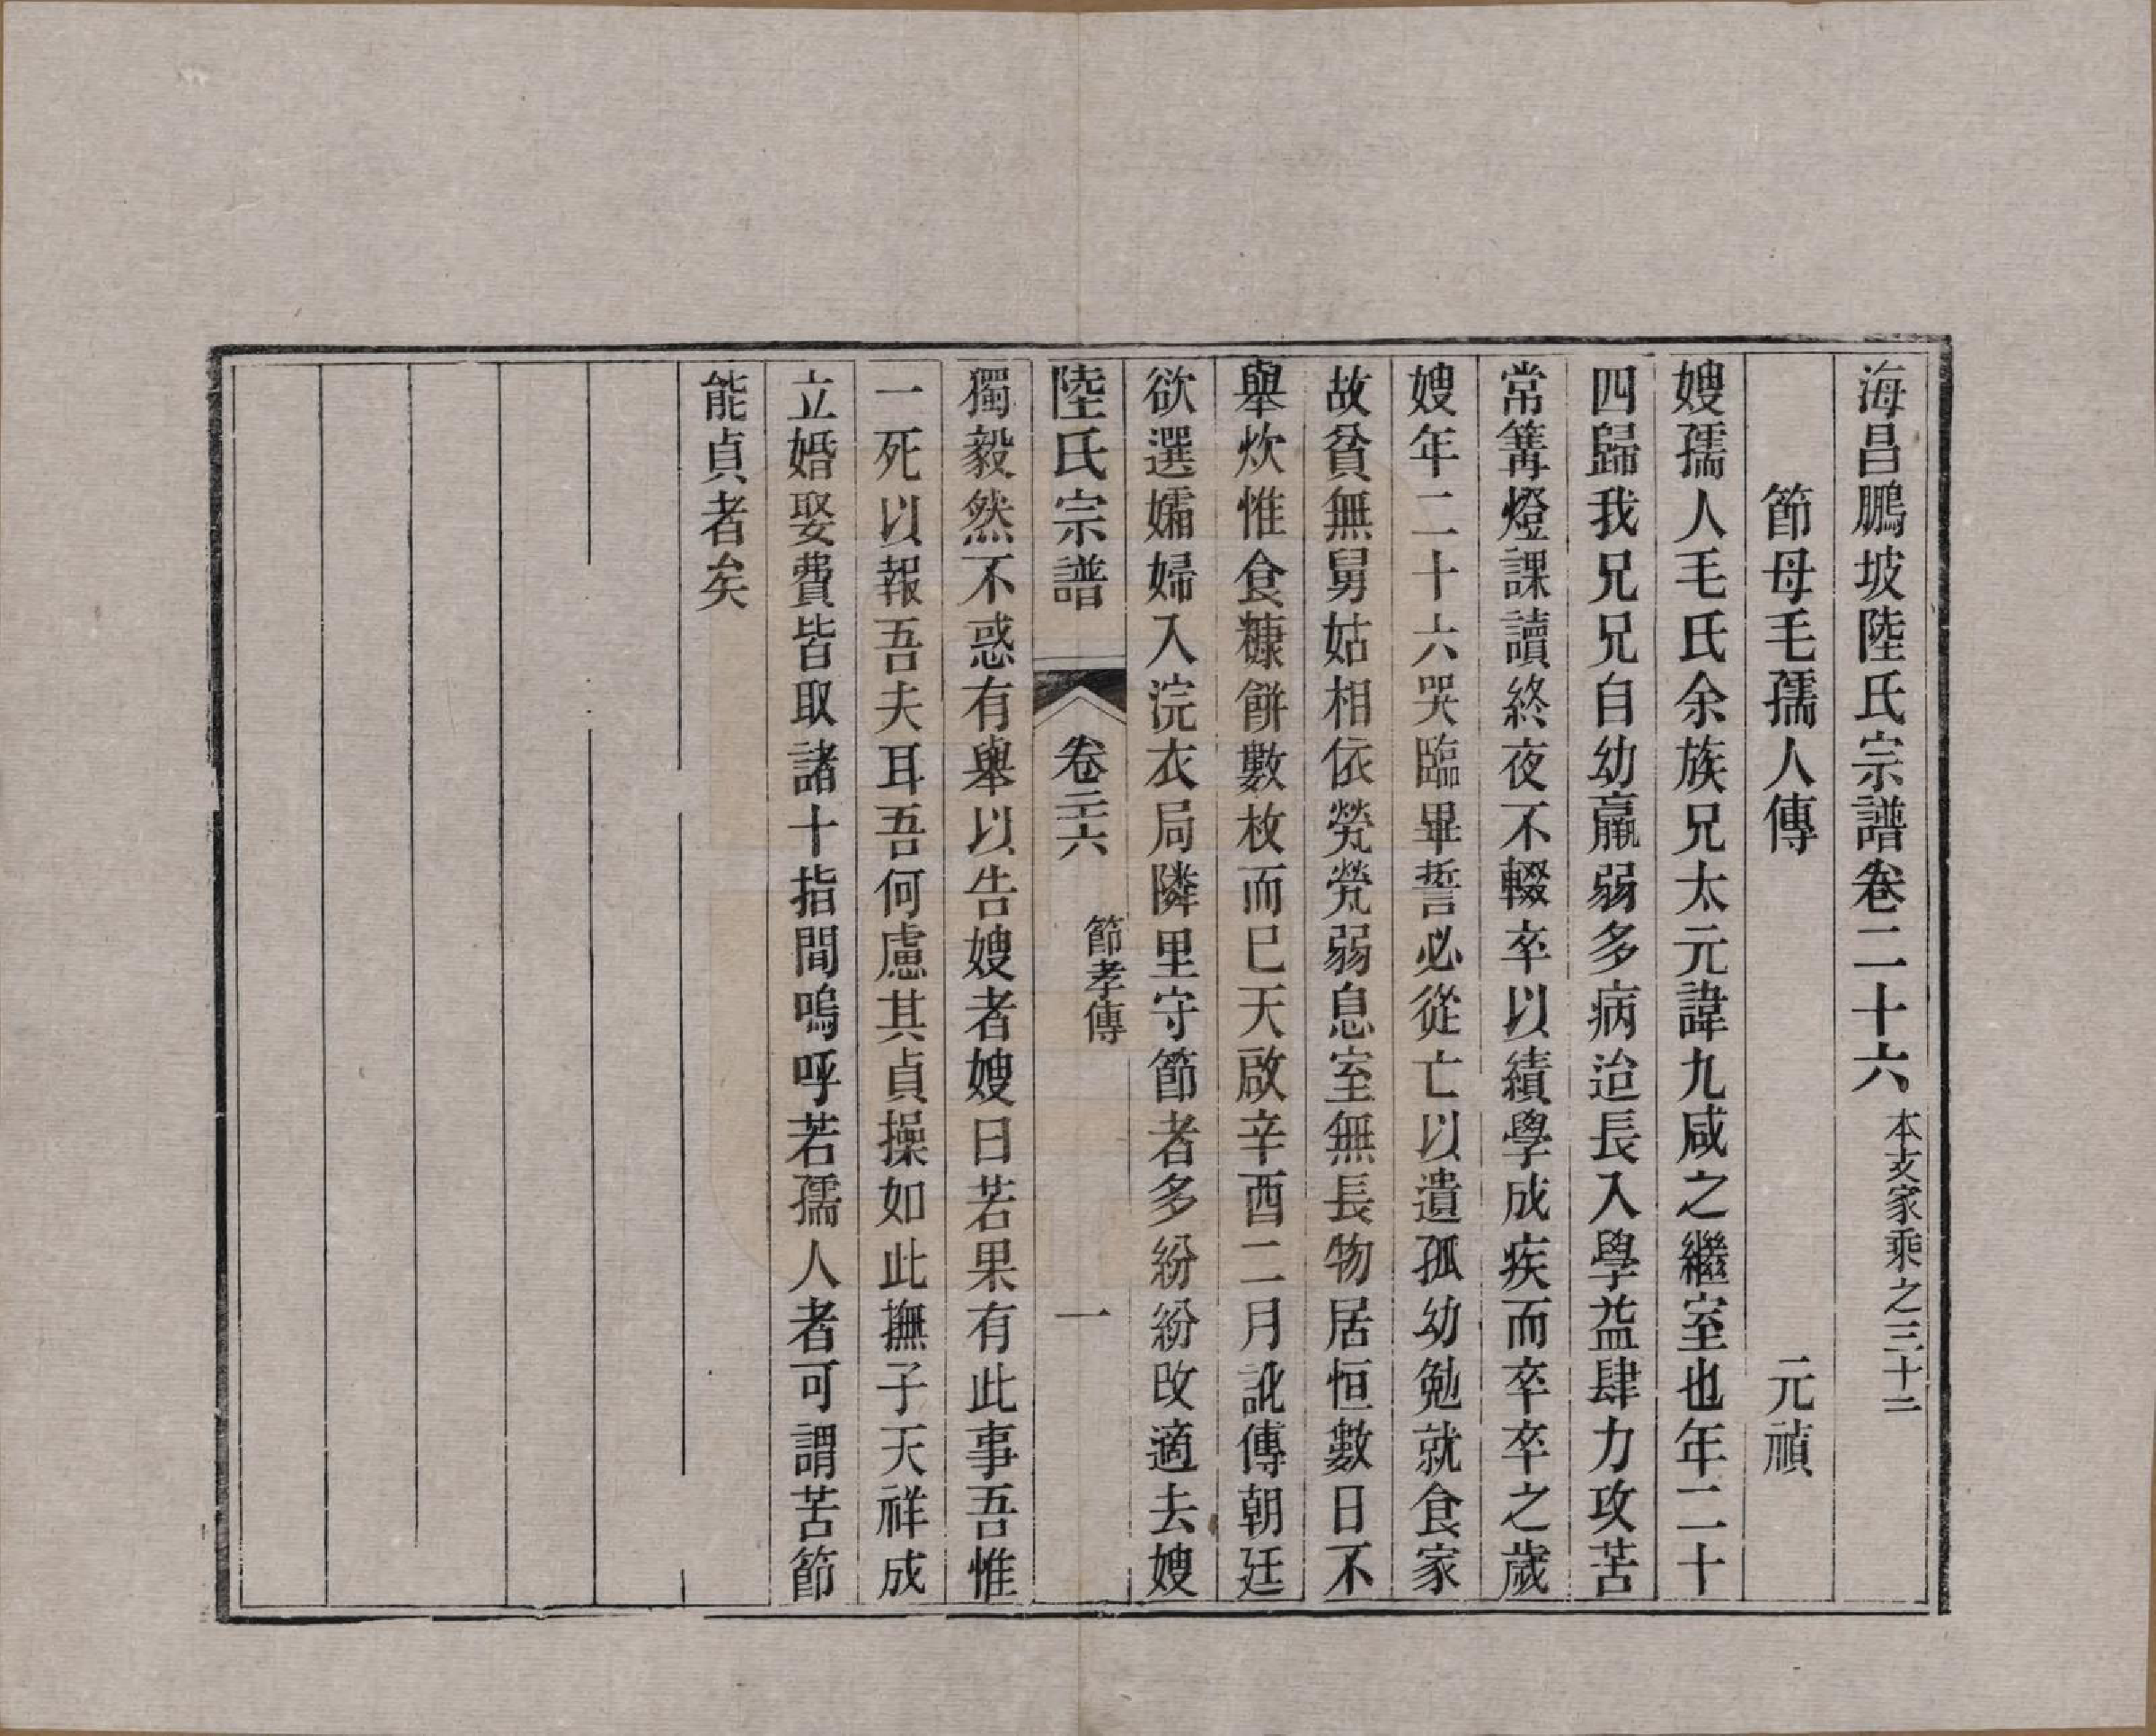 海昌鵬坡陸氏宗譜卷二十六 本支家乘之三十二
節母毛孺人傳 元禎
嫂孺人毛氏余族兄太元諱九咸之繼室也年二十
四歸我兄兄自幼羸弱多病迨長入學益肆力攻苦
常篝燈課讀終夜不輟卒以績學成疾而卒卒之歲
嫂年二十六哭臨畢誓必從亡以遺孤幼勉就食家
故貧無舅姑相依煢煢弱息室無長物居恒數日不
舉炊惟食糠餅數枚而巳天啟辛酉二月訛傳朝廷
欲選孀婦入浣衣局隣里守節者多紛紛改適去嫂
陸氏宗譜 卷二十六 節孝傳 一
獨毅然不惑有舉以告嫂者嫂曰若果有此事吾惟
一死以報吾夫耳吾何慮其貞操如此撫子天祥成
立婚娶費皆取諸十指間嗚呼若孺人者可謂苦節
能貞者矣